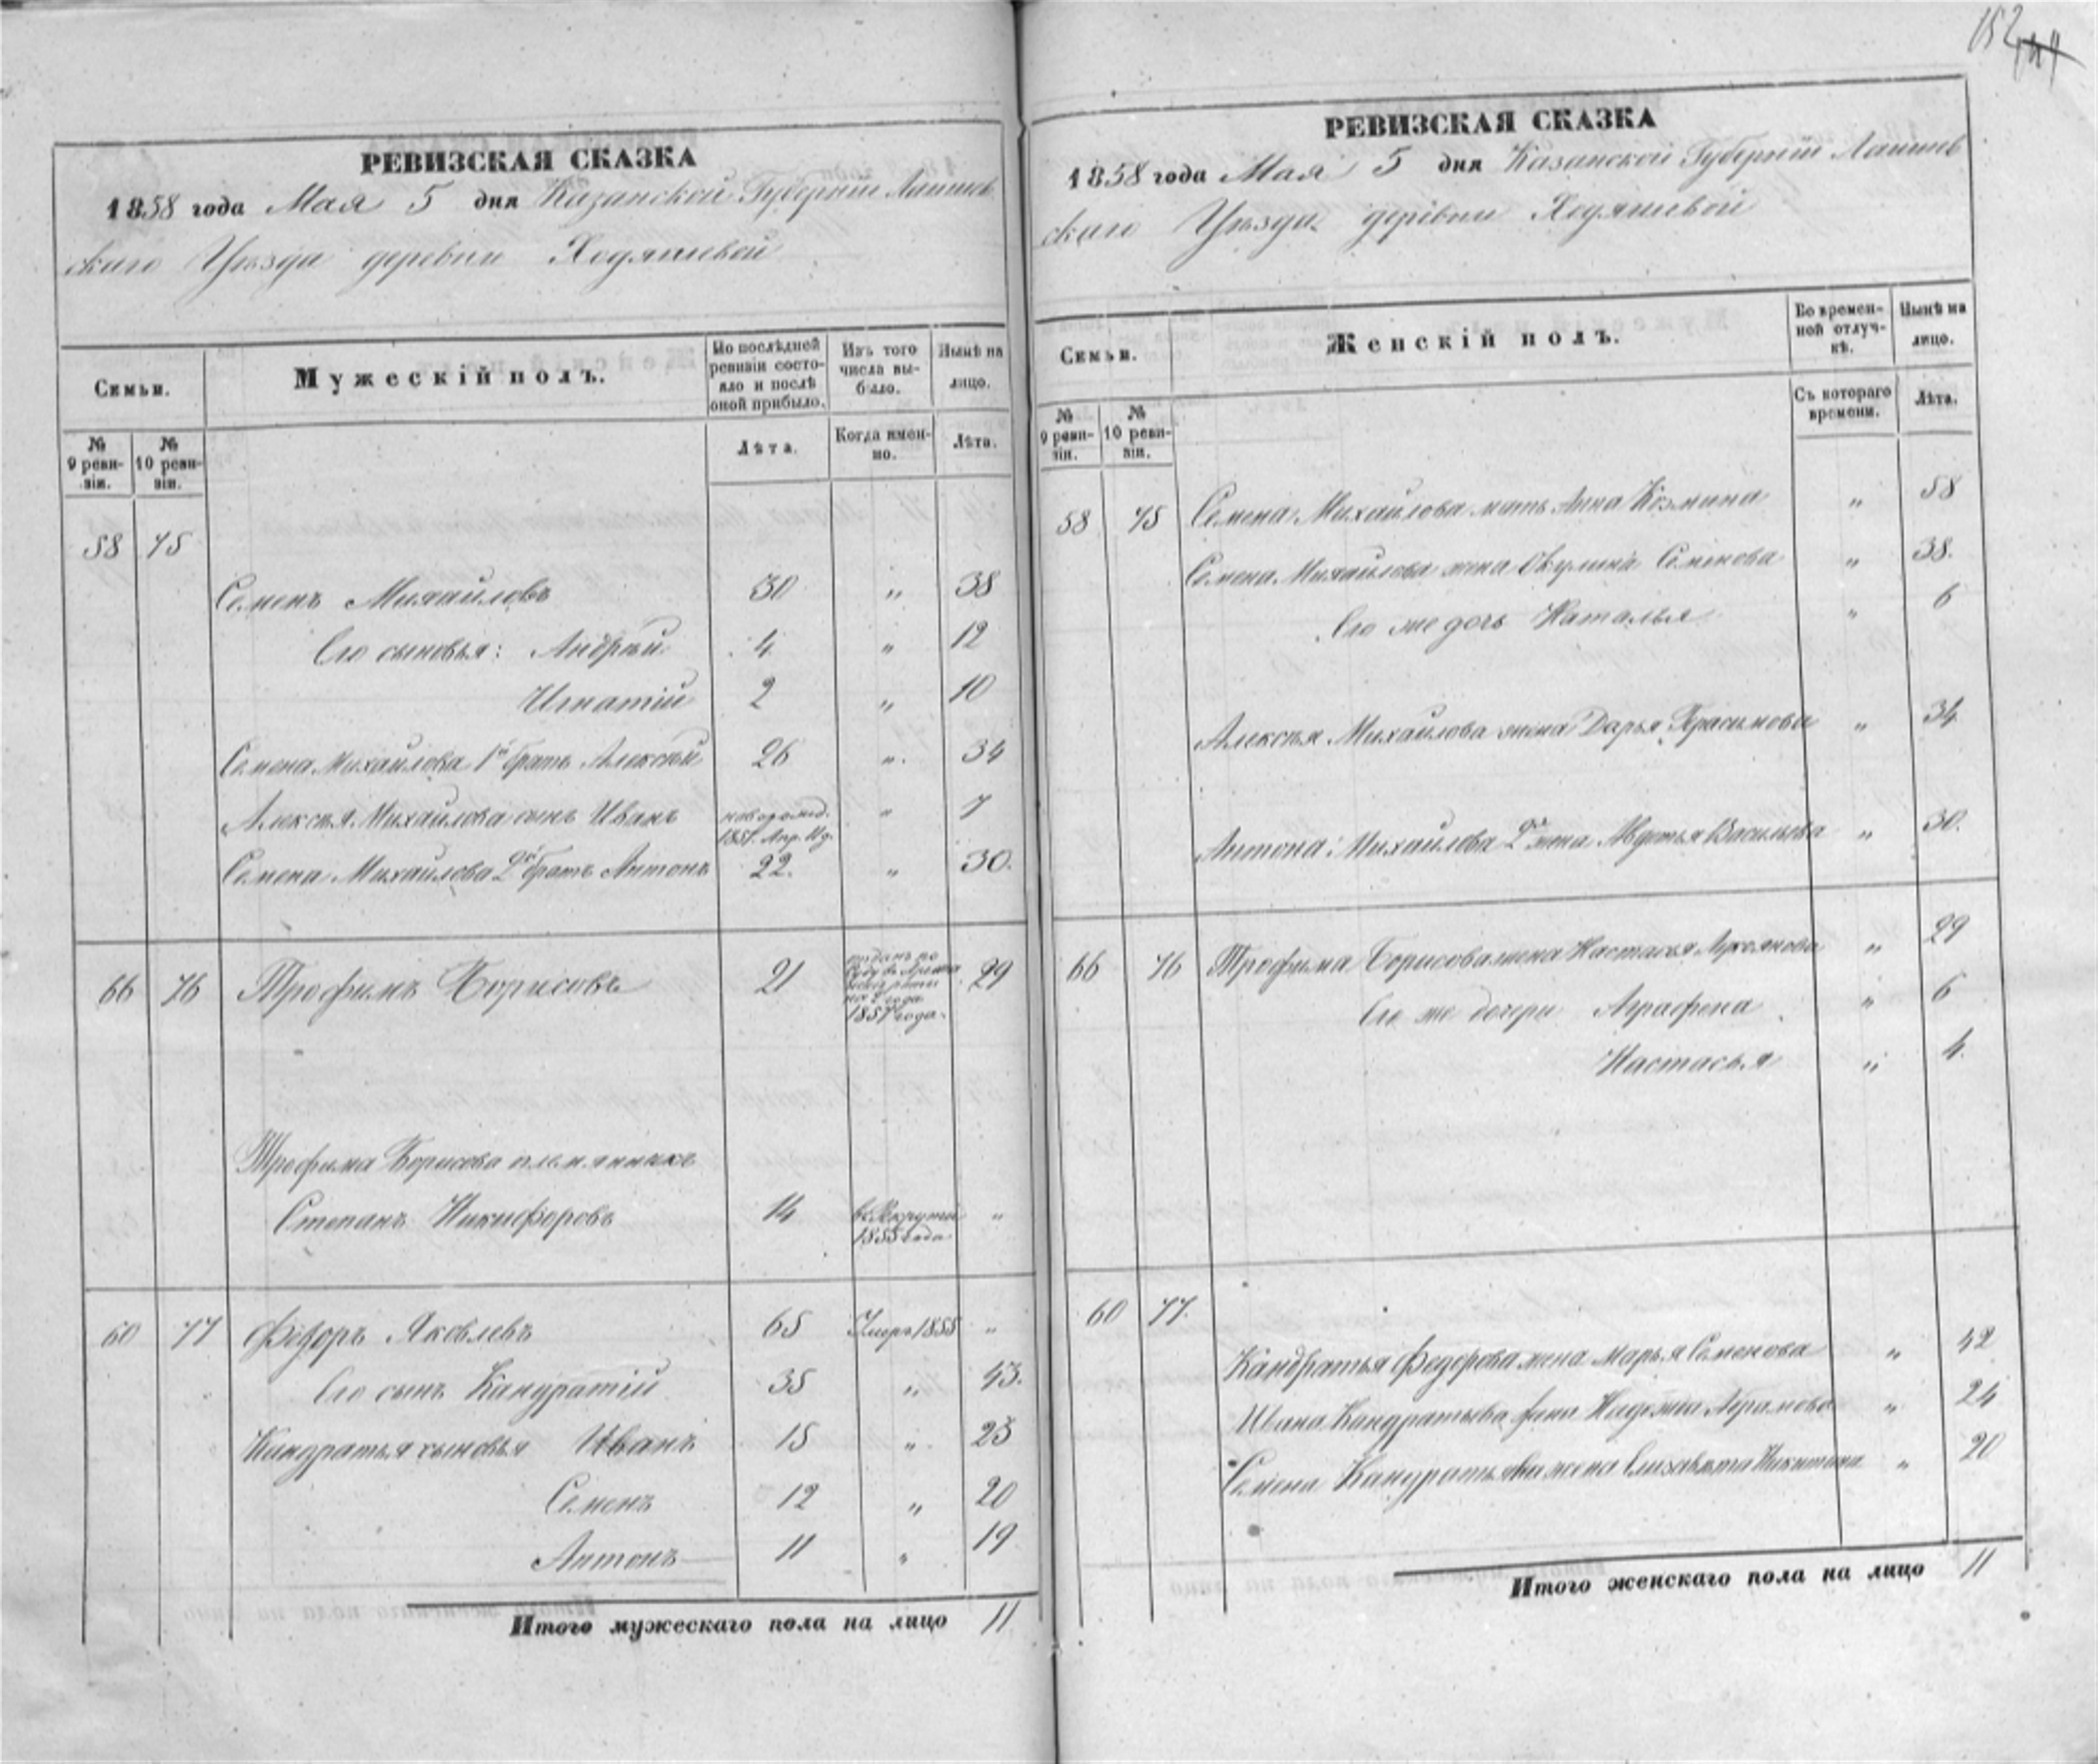 152
РЕВИЗСКАЯ СКАЗКА
1858 года Мая 5 дня Казанской Губерніи Лаишев
скаго Уѣзда деревни Ходяшевой
Семьи.
Мужескій полъ.
По послѣдней ревизіи состояло и послѣ оной прибыло.
Изъ того числа выбыло.
Нынѣ на лицо.
№ 9 ревизіи.
№ 10 ревизіи.
Лѣта.
Когда именно.
Лѣта.
58 75
Семенъ Михайловъ 30 " 38
Его сыновья: Андрей 4 " 12
Игнатій 2 " 10
Семена Михайлова 1й братъ Алексѣй 26 " 34
Алексѣя Михайлова сынъ Иванъ новорожд. 1851. " 7
Семена Михайлова 2й братъ Антонъ 22. " 30.
66 76 Трофимъ Борисовъ 21 отданъ по суду въ 1857 года. 29
Трофима Борисова племянникъ
Степанъ Никифоровъ 14 в рекруты 1855 года "
60 77 Федоръ Яковлевъ 65 Умеръ 1855 "
Его сынъ Кандратій 35 " 43.
Кандратья сыновья Иванъ 15 " 23
Семенъ 12 " 20
Антонъ 11 " 19
Итого мужескаго пола на лицо 11
РЕВИЗСКАЯ СКАЗКА
1858 года Мая 5 дня Казанской Губерніи Лаишев
скаго Уѣзда деревни Ходяшевой
Семьи.
Женскій полъ.
Во временной отлучкѣ.
Нынѣ на лицо.
№ 9 ревизіи.
№ 10 ревизіи.
Съ котораго времени.
Лѣта.
58 75 Семена Михайлова мать Анна Козмина " 58
Семена Михайлова жена Окулина Семенова " 38.
Его же дочь Наталья " 6
Алексѣя Михайлова жена Дарья Герасимова " 34
Антона Михайлова 2я жена Авдотья Васильева " 30.
66 76 Трофима Борисова жена Настасья " 29
Его же дочери Аграфена " 6
Настасья " 4.
60 77.
Кандратья Федорова жена Марья Семенова " 42
Ивана Кандратьева жена Надежда Абрамова " 24
Семена Кандратьева жена Елизавета Никитина " 20
Итого женскаго пола на лицо 11